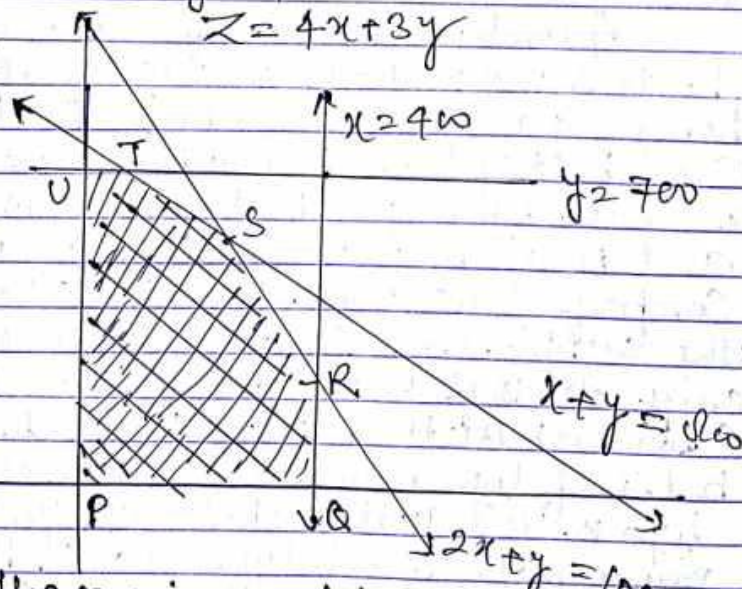 Z = 4x + 3y
x = 400
T
U
y = 700
S
R
x + y = 800
P
Q
2x + y =